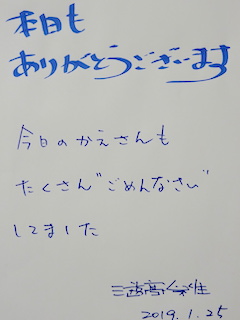 本日も
ありがとうございます
今日のかえさんも
たくさん"ごめんなさい"
してました
2019.1.25